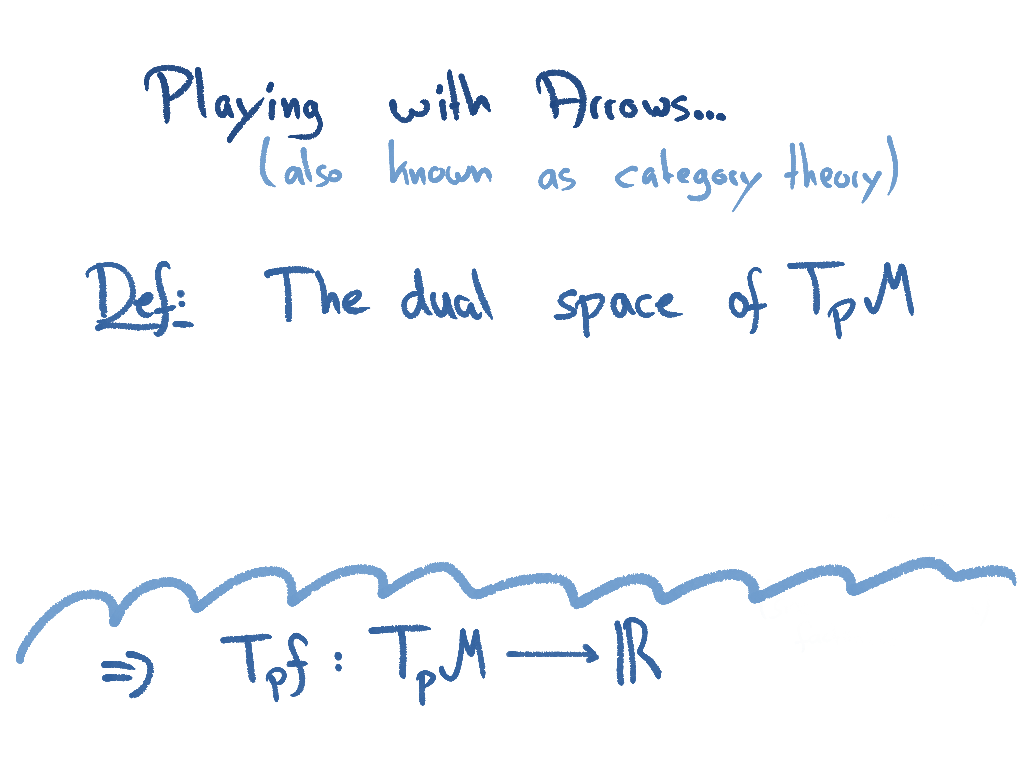 Playing with Arrows...
(also known as category theory)
Def: The dual space of TₚM
⇒ Tₚf : TₚM ⟶ ℝ